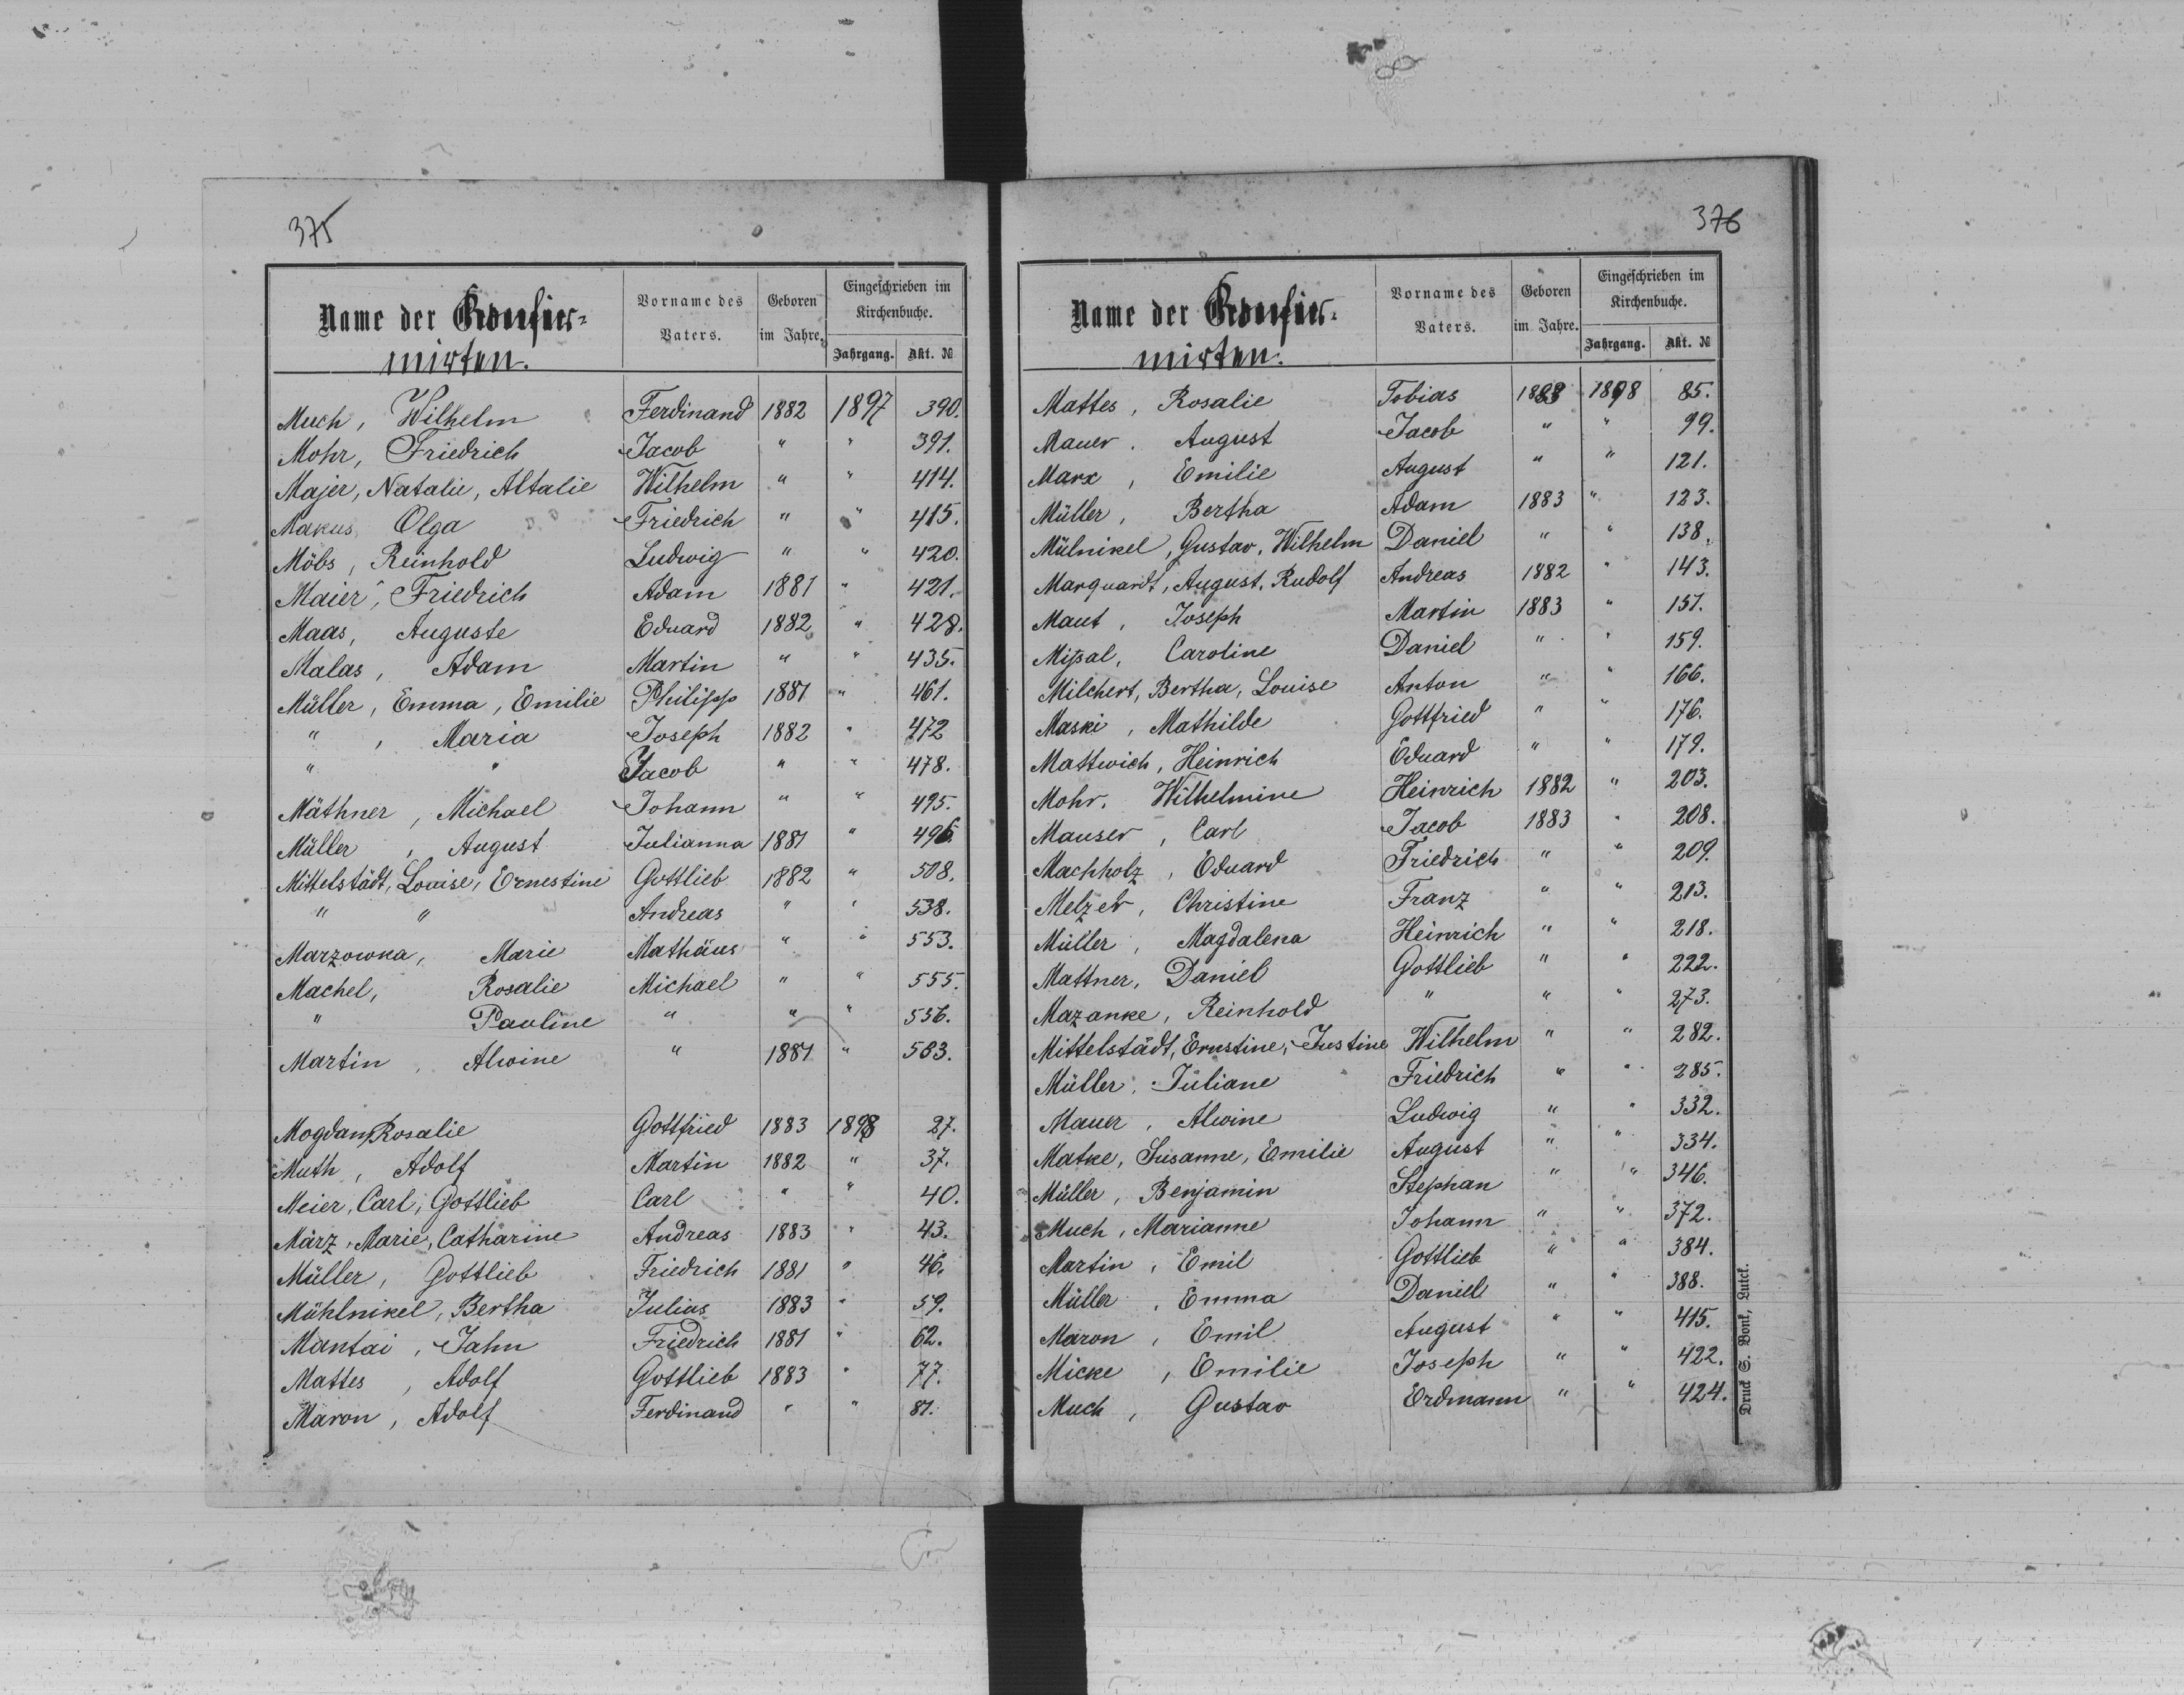 375
Name der Konfir-
mirten.
Vorname des
Vaters.
Geboren
im Jahre.
Eingeschrieben im
Kirchenbuche.
Jahrgang. Akt. №
Much, Wilhelm Ferdinand 1882 1897 390.
Mohr, Friedrich Jacob " " 391.
Majer, Natalie, Altalie Wilhelm " " 414.
Makus, Olga Friedrich " " 415.
Möbs, Reinhold Ludwig " " 420.
Maier, Friedrich Adam 1881 " 421.
Maas, Auguste Eduard 1882 " 428.
Malas, Adam Martin " " 435.
Müller, Emma, Emilie Philipp 1881 " 461.
" , Maria Joseph 1882 " 472
" " Jacob " " 478.
Mäthner, Michael Johann " " 495.
Müller, August Julianna 1881 " 496.
Mittelstädt, Louise, Ernestine Gottlieb 1882 " 508.
" " Andreas " " 538.
Marzowka, Marie Mathäus " " 553.
Machel, Rosalie Michael " " 555.
" Pauline " " " 556.
Martin, Alwine " 1881 " 563.
Mogdan, Rosalie Gottfried 1883 1898 27.
Muth, Adolf Martin 1882 " 37.
Meier, Carl, Gottlieb Carl " " 40.
März, Marie, Catharine Andreas 1883 " 43.
Müller, Gottlieb Friedrich 1881 " 46.
Mühlnikel, Bertha Julius 1883 " 59.
Mantai, Jahn Friedrich 1881 " 62.
Mattes, Adolf Gottlieb 1883 " 77.
Maron, Adolf Ferdinand " " 81.
376
Name der Konfir-
mirten.
Vorname des
Vaters.
Geboren
im Jahre.
Eingeschrieben im
Kirchenbuche.
Jahrgang. Akt. №
Mattes, Rosalie Tobias 1883 1898 85.
Mauer. August Jacob " " 99.
Marx, Emilie August " " 121.
Müller, Bertha Adam 1883 " 123.
Mülnikel, Gustav, Wilhelm Daniel " " 138.
Marquardt, August, Rudolf Andreas 1882 " 143.
Maut, Joseph Martin 1883 " 151.
Mißal, Caroline Daniel " " 159.
Milchert, Bertha, Louise Anton " " 166.
Maski, Mathilde Gottfried " " 176.
Mattwich, Heinrich Eduard " " 179.
Mohr, Wilhelmine Heinrich 1882 " 203.
Mauser, Carl Jacob 1883 " 208.
Machholz, Eduard Friedrich " " 209.
Melzer, Christine Franz " " 213.
Müller, Magdalena Heinrich " " 218.
Mattner, Daniel Gottlieb " " 222.
Mazanke, Reinhold " " " 273.
Mittelstädt, Ernstine, Justine Wilhelm " " 282.
Müller, Juliane Friedrich " " 285.
Mauer, Alwine Ludwig " " 332.
Matke, Susanne, Emilie August " " 334.
Müller, Benjamin Stephan " " 346.
Much, Marianne Johann " " 372.
Martin, Emil Gottlieb " " 384.
Müller, Emma Daniel " " 388.
Maron, Emil August " " 415.
Micke, Emilie Joseph " " 422.
Much, Gustav Erdmann " " 424.
Druck S. Bonk, Lutck.